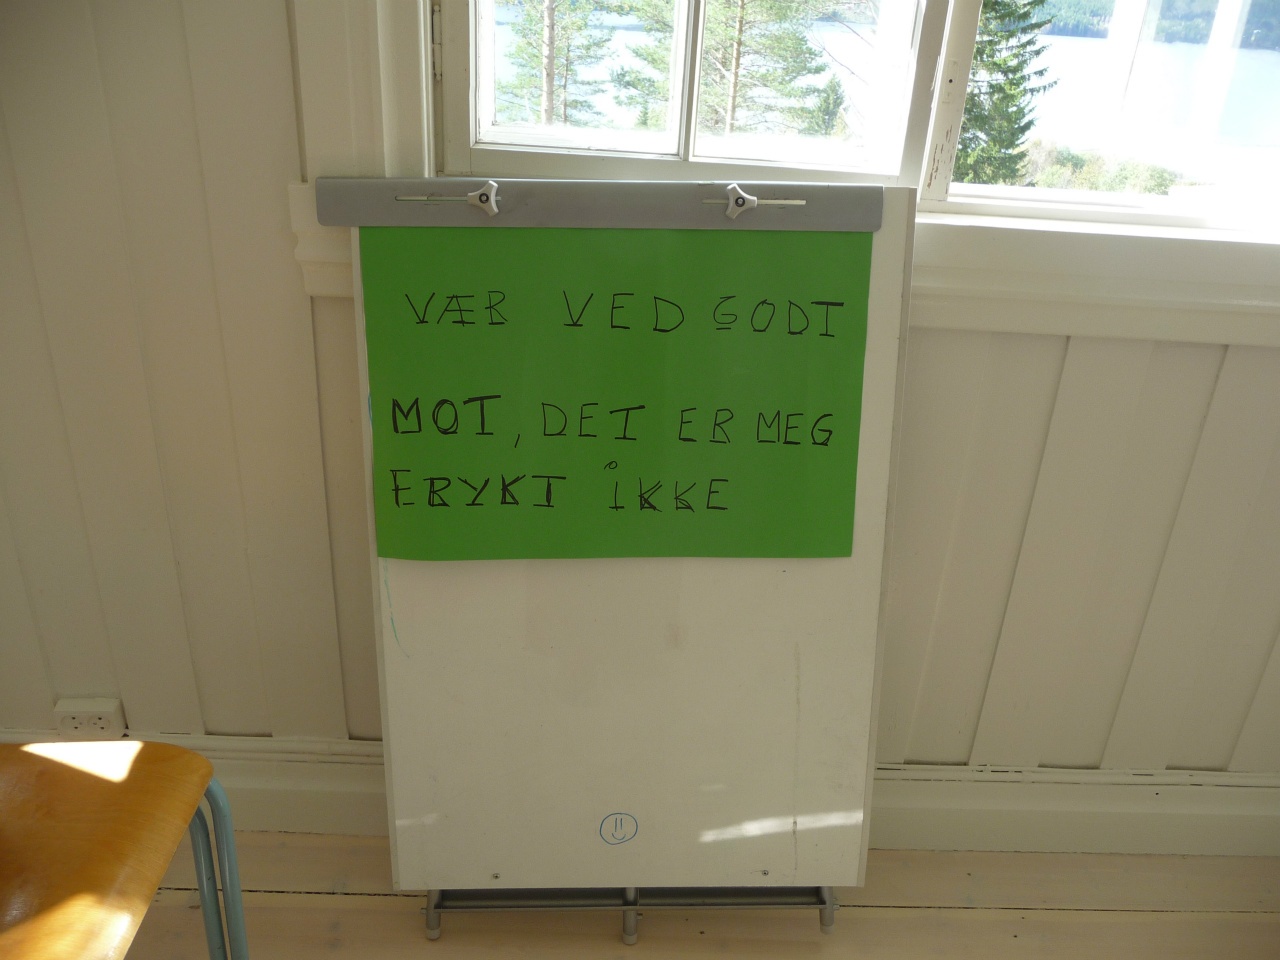 VÆR VED GODT
MOT, DET ER MEG
FRYKT IKKE